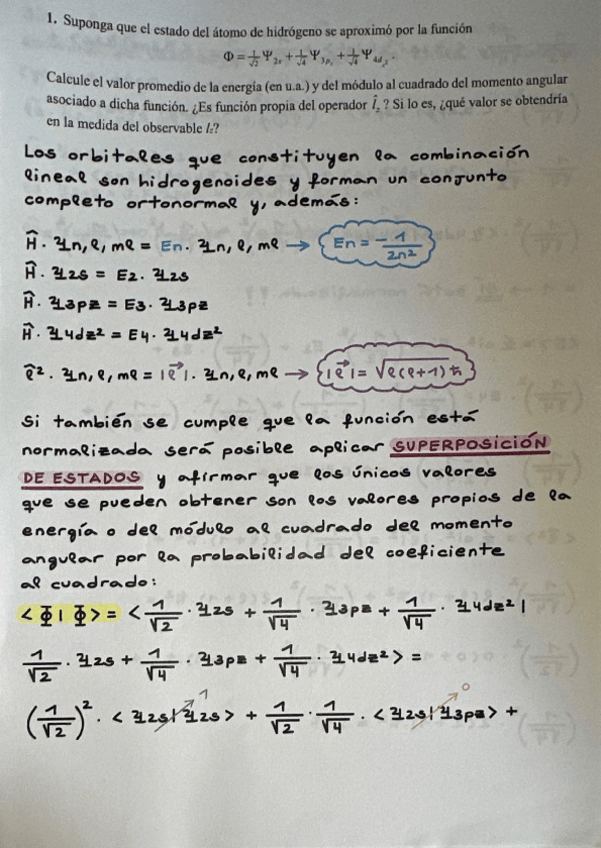 1. Suponga que el estado del átomo de hidrógeno se aproximó por la función
Φ = 1/√2 Ψ2s + 1/√4 Ψ3pz + 1/√4 Ψ4dz².
Calcule el valor promedio de la energía (en u.a.) y del módulo al cuadrado del momento angular
asociado a dicha función. ¿Es función propia del operador l̂z ? Si lo es, ¿qué valor se obtendría
en la medida del observable lz?
Los orbitales que constituyen la combinación
lineal son hidrogenoides y forman un conjunto
completo ortonormal y, además:
Ĥ · Ψn,l,ml = En · Ψn,l,ml → En = -1/2n²
Ĥ · Ψ2s = E2 · Ψ2s
Ĥ · Ψ3pz = E3 · Ψ3pz
Ĥ · Ψ4dz² = E4 · Ψ4dz²
l̂² · Ψn,l,ml = |l⃗| · Ψn,l,ml → |l⃗| = √l(l+1) ℏ
Si también se cumple que la función está
normalizada será posible aplicar SUPERPOSICIÓN
DE ESTADOS y afirmar que los únicos valores
que se pueden obtener son los valores propios de la
energía o del módulo al cuadrado del momento
angular por la probabilidad del coeficiente
al cuadrado:
<Φ|Φ> = <1/√2 · Ψ2s + 1/√4 · Ψ3pz + 1/√4 · Ψ4dz² |
1/√2 · Ψ2s + 1/√4 · Ψ3pz + 1/√4 · Ψ4dz²> =
(1/√2)² · <Ψ2s|Ψ2s> 1 + 1/√2 · 1/√4 · <Ψ2s|Ψ3pz> 0 +